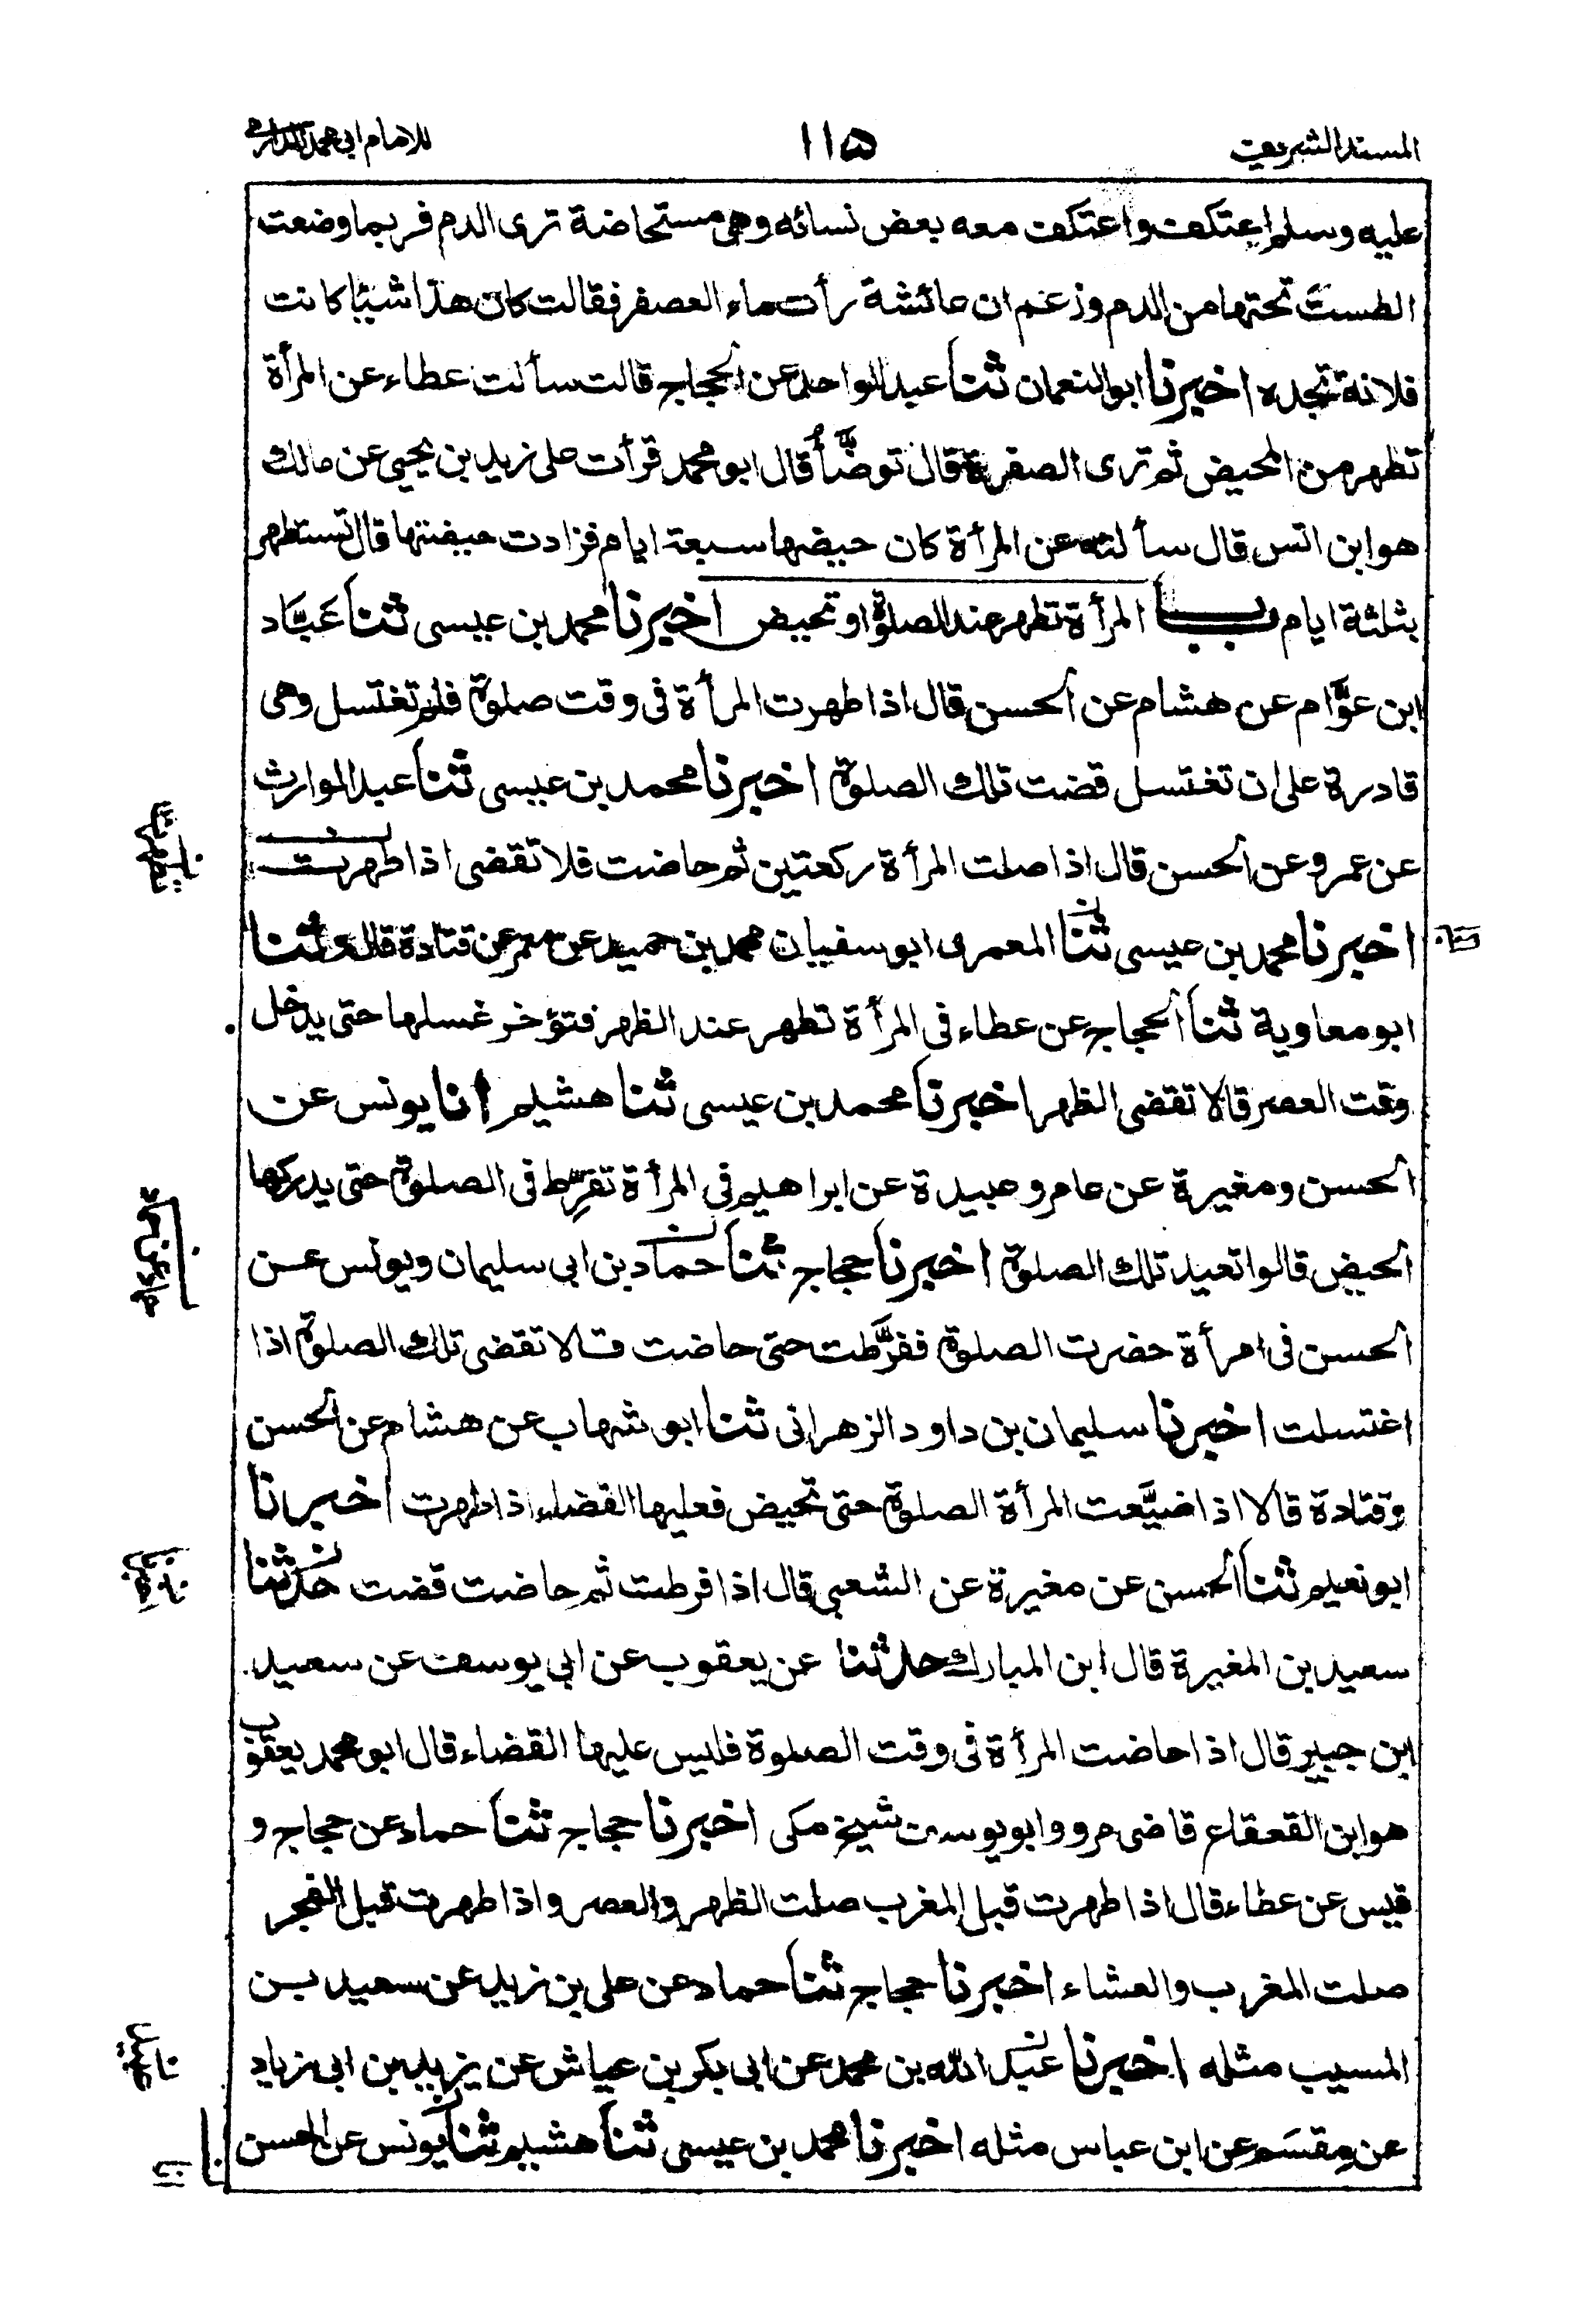 المسند الشريف ١١٥ للامام ابي محمد الدارمي
عليه وسلم اعتكف واعتكف معه بعض نسائه وهي مستحاضة ترى الدم فربما وضعت
الطست تحتها من الدم وزعم ان عائشة رأت ماء العصفر فقالت كان هذا شيئا كانت
فلانة تجده اخبرنا ابو النعمان ثنا عبد الواحد عن الحجاج قالت سألت عطاء عن المرأة
تطهر من المحيض ثم ترى الصفرة قال توضَّأُ قال ابو محمد قرأت على زيد بن يحيى عن مالك
هو ابن انس قال سألته عن المرأة كان حيضها سبعة ايام فزادت حيضتها قال تستطهر
بثلثة ايام باب المرأة تطهر عند الصلوة او تحيض اخبرنا محمد بن عيسى ثنا عَبَّاد
ابن عوَّام عن هشام عن الحسن قال اذا طهرت المرأة في وقت صلوة فلم تغتسل وهي
قادرة على ان تغتسل قضت تلك الصلوة اخبرنا محمد بن عيسى ثنا عبد الوارث
عن عمرو عن الحسن قال اذا صلت المرأة ركعتين ثم حاضت فلا تقضي اذا طهرت
اخبرنا محمد بن عيسى ثنا المعمري ابو سفيان محمد بن حميد عن معمر عن قتادة قال وثنا
ابو معاوية ثنا الحجاج عن عطاء في المرأة تطهر عند الظهر فتؤخر غسلها حتى يدخل
وقت العصر قالا تقضي الظهر اخبرنا محمد بن عيسى ثنا هشيم انا يونس عن
الحسن ومغيرة عن عامر وعبيدة عن ابراهيم في المرأة تفرِّط في الصلوة حتى يدركها
الحيض قالوا تعيد تلك الصلوة اخبرنا حجاج ثنا حماد بن ابي سليمان ويونس عن
الحسن في امرأة حضرت الصلوة ففرَّطت حتى حاضت قالا تقضي تلك الصلوة اذا
اغتسلت اخبرنا سليمان بن داود الزهراني ثنا ابو شهاب عن هشام عن الحسن
وقتادة قالا اذا ضيَّعت المرأة الصلوة حتى تحيض فعليها القضاء اذا طهرت اخبرنا
ابو نعيم ثنا الحسن عن مغيرة عن الشعبي قال اذا فرطت ثم حاضت قضت حدثنا
سعيد بن المغيرة قال ابن المبارك حدثنا عن يعقوب عن ابي يوسف عن سعيد
ابن جبير قال اذا حاضت المرأة في وقت الصلوة فليس عليها القضاء قال ابو محمد يعقوب
هو ابن القعقاع قاضي مرو وابو يوسف شيخ مكي اخبرنا حجاج ثنا حماد عن حجاج و
قيس عن عطاء قال اذا طهرت قبل المغرب صلت الظهر والعصر واذا طهرت قبل الفجر
صلت المغرب والعشاء اخبرنا حجاج ثنا حماد عن علي بن زيد عن سعيد بن
المسيب مثله اخبرنا عبد الله بن محمد عن ابي بكر بن عياش عن يزيد بن ابي زياد
عن مِقسَم عن ابن عباس مثله اخبرنا محمد بن عيسى ثنا هشيم ثنا يونس عن الحسن